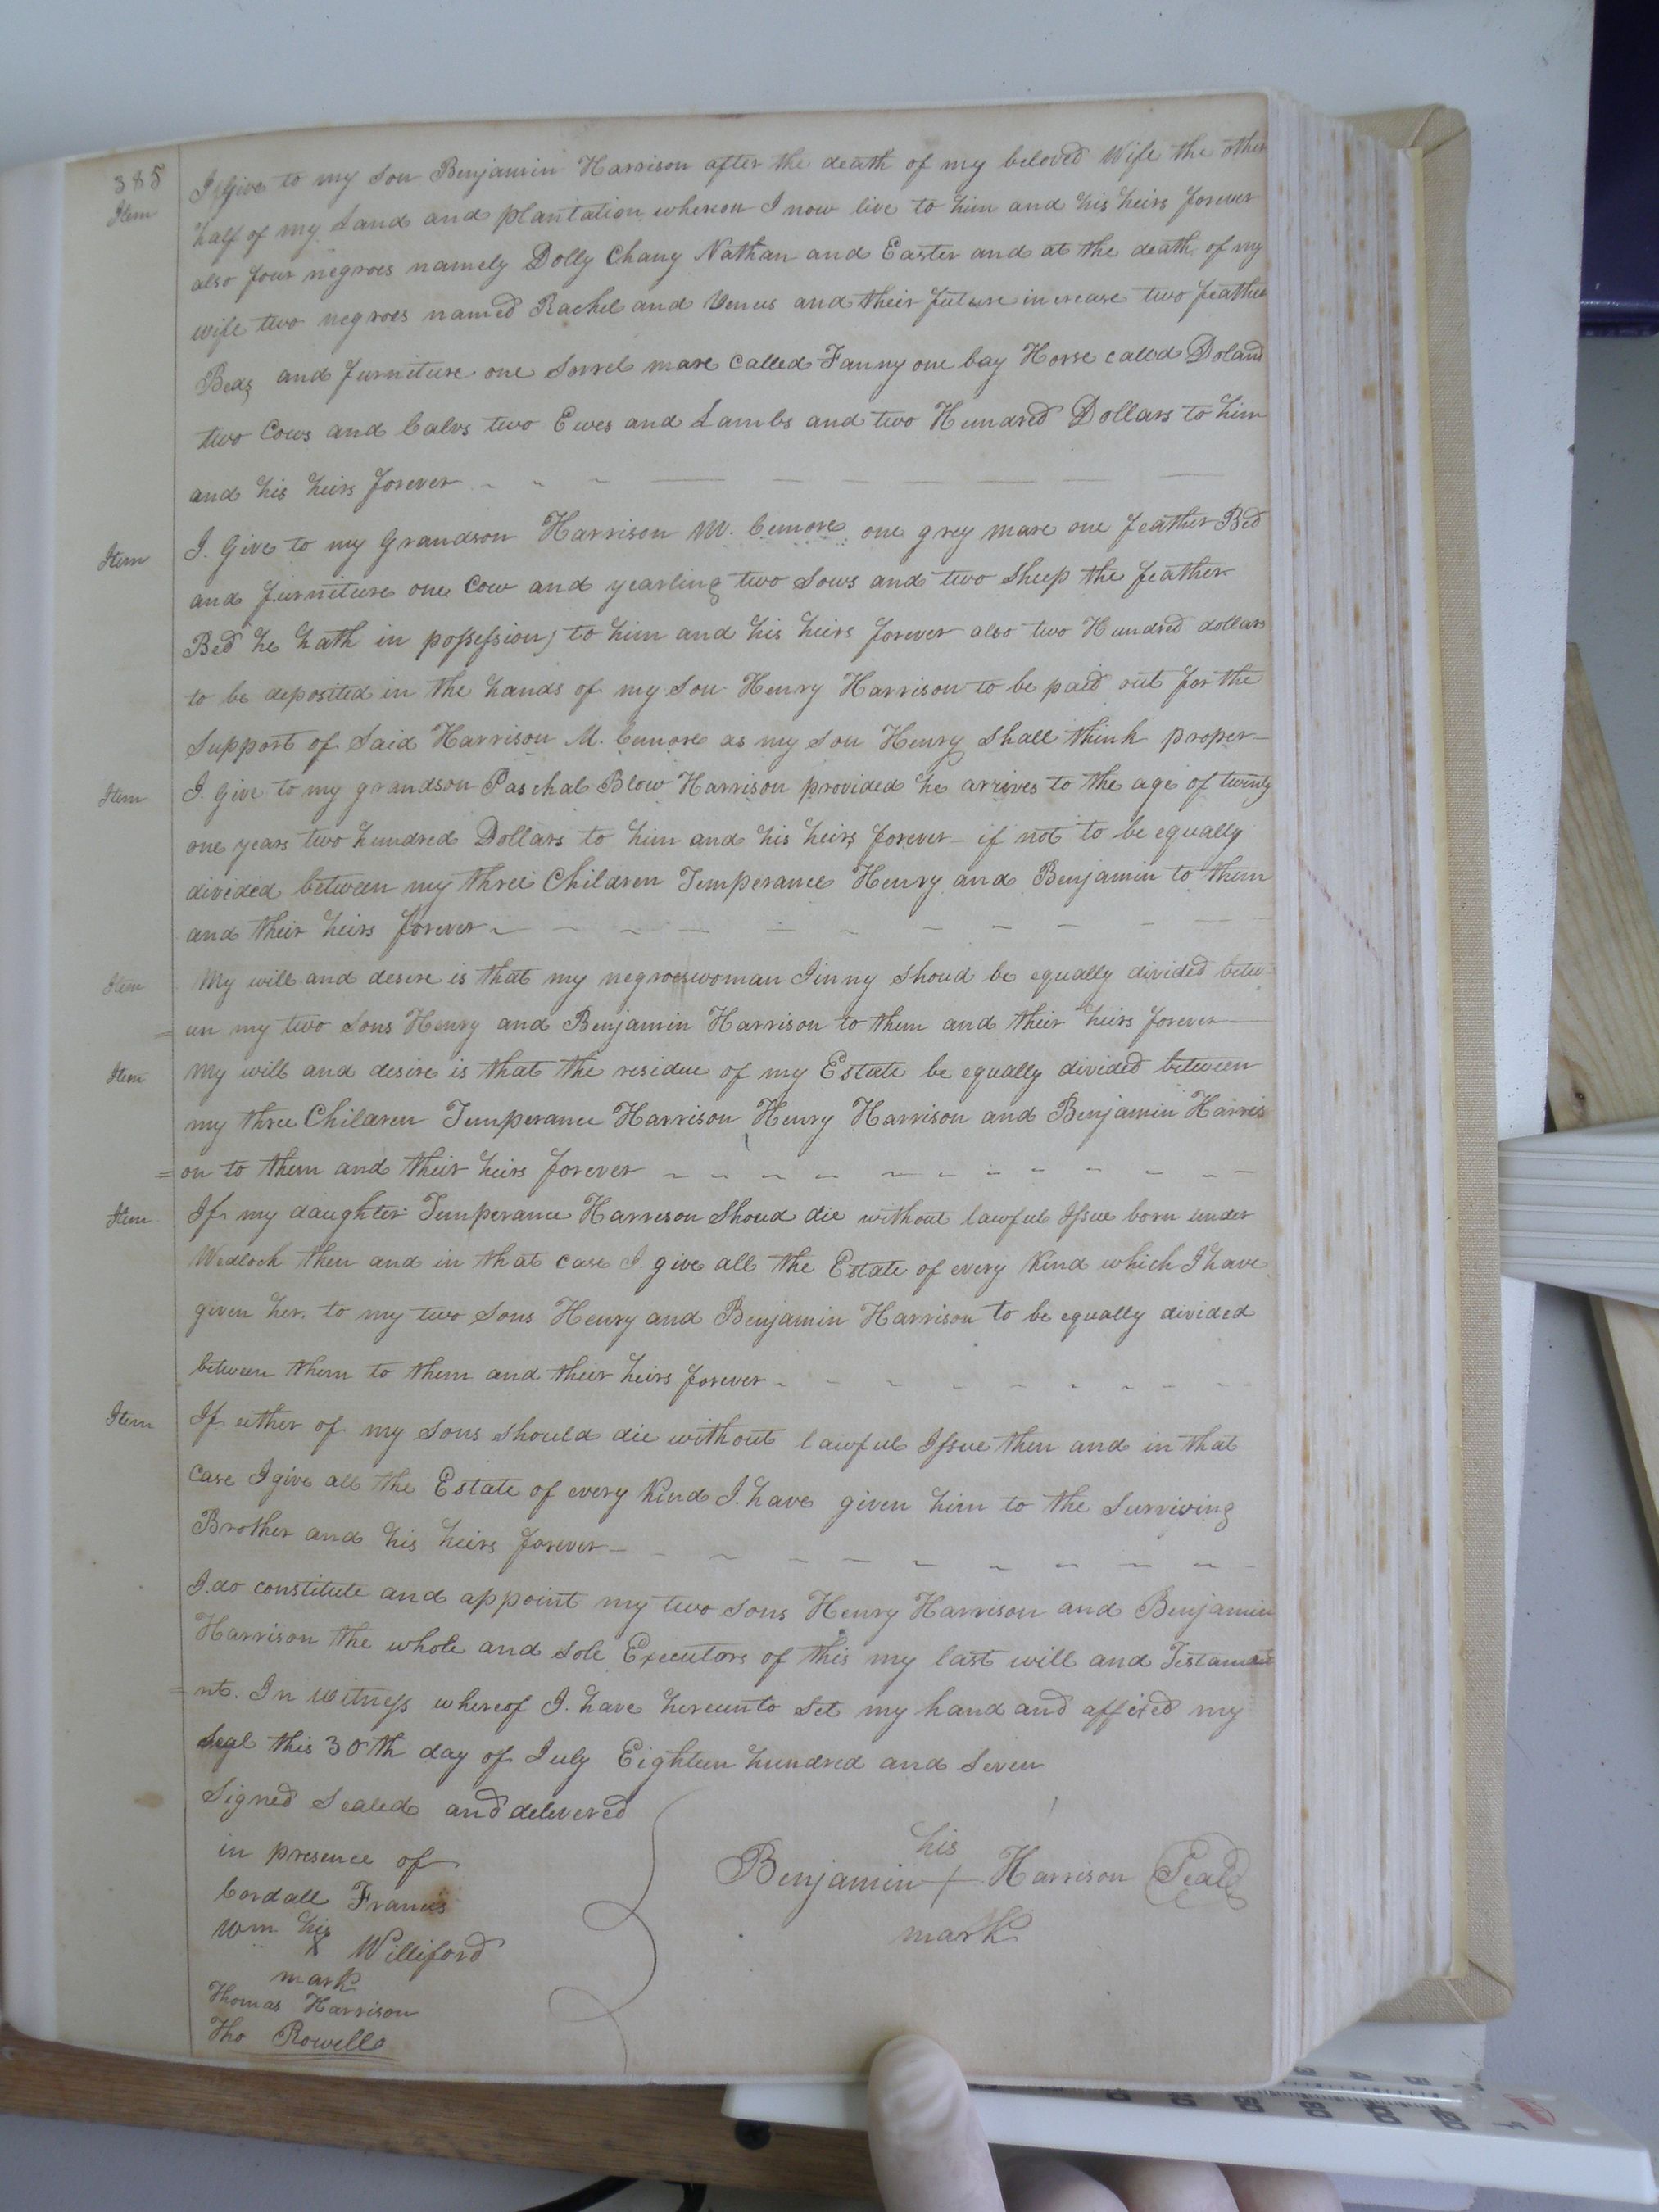 385
Item I Give to my Son Benjamin Harrison after the death of my beloved Wife the other
half of my Land and plantation whereon I now live to him and his heirs forever
also four negroes namely Dolly Chany Nathan and Easter and at the death of my
wife two negroes named Rachel and Venus and their future increase two feather
Beds and furniture one Sorrel mare Called Fanny one bay Horse called Doland
two Cows and Calvs two Ewes and Lambs and two Hundred Dollars to him
and his heirs forever
Item I Give to my Grandson Harrison M. Cemore one grey mare one feather Bed
and furniture one Cow and yearling two Sows and two Sheep the feather
Bed he hath in possession) to him and his heirs forever also two Hundred dollars
to be deposited in the hands of my Son Henry Harrison to be paid out for the
Support of Said Harrison M. Cemore as my Son Henry Shall think proper—
Item I Give to my grandson Paschal Blow Harrison provided he arrives to the age of twenty
one years two hundred Dollars to him and his heirs forever— if not to be equally
divided between my three Children Temperance Henry and Benjamin to them
and their heirs forever
Item My will and desire is that my negroeswoman Jinny Shoud be equally divided betw
=en my two Sons Henry and Benjamin Harrison to them and their heirs forever—
Item My will and desire is that the residue of my Estate be equally divided between
my three Children Temperance Harrison Henry Harrison and Benjamin Harris
=on to them and their heirs forever
Item If my daughter Temperance Harreson Shoud die without lawful Issue born under
Wedlock then and in that case I give all the Estate of every Kind which I have
given her to my two Sons Henry and Benjamin Harrison to be equally divided
between them to them and their heirs forever
Item If either of my Sons should die without lawful Issue then and in that
Case I give all the Estate of every Kind I have given him to the Surviving
Brother and his heirs forever—
I do constitute and appoint my two Sons Henry Harrison and Benjamin
Harrison the whole and Sole Executors of this my last will and Testame
=nt. In witness whereof I have hereunto Set my hand and affixed my
Seal this 30th day of July Eighteen hundred and Seven
Signed Sealed and delevered
in presence of
Cordall Francis
Wm his
x Williford
mark
Thomas Harrison
Tho Rowell
his
Benjamin + Harrison Seal
mark